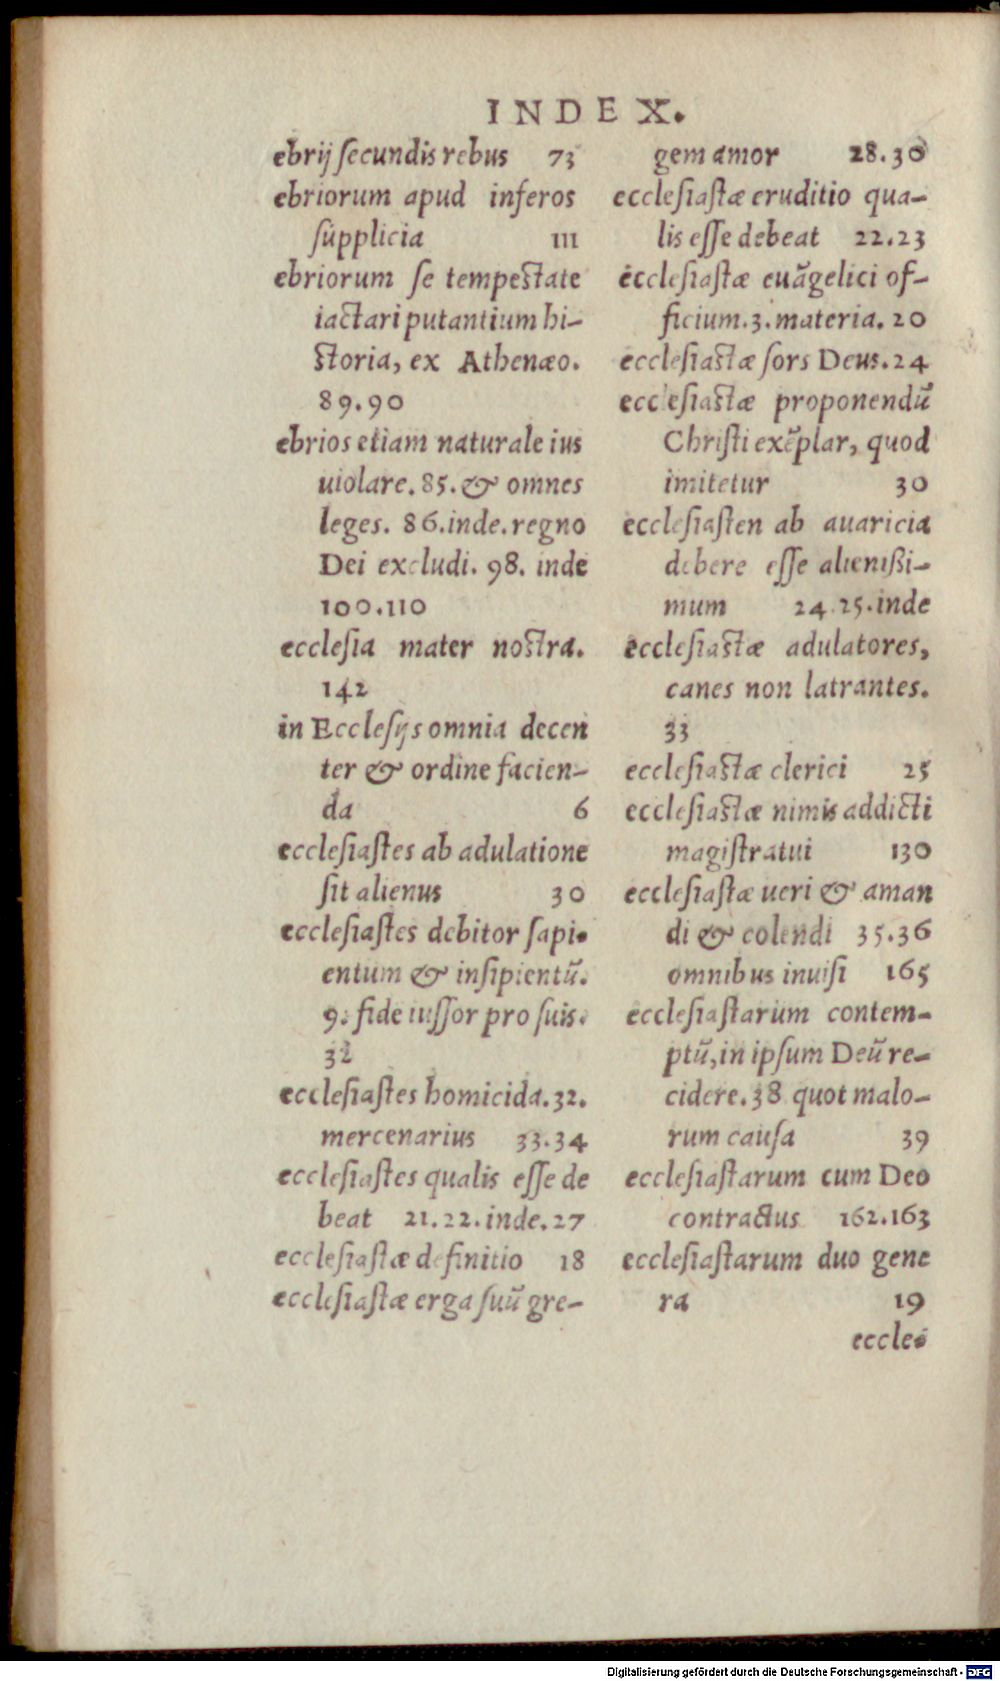 INDEX.
ebrij ſecundis rebus 73
ebriorum apud inferos
ſupplicia 111
ebriorum ſe tempeſtate
iactari putantium hi-
ſtoria, ex Athenæo.
89.90
ebrios etiam naturale ius
uiolare. 85. & omnes
leges. 86. inde. regno
Dei excludi. 98. inde
100.110
eccleſia mater noſtra.
142
in Eccleſijs omnia decen
ter & ordine facien-
da 6
eccleſiaſtes ab adulatione
ſit alienus 30
eccleſiaſtes debitor ſapi-
entum & inſipientū.
9. fideiuſſor pro ſuis.
32
eccleſiaſtes homicida. 32.
mercenarius 33.34
eccleſiaſtes qualis eſſe de
beat 21.22. inde. 27
eccleſiaſtæ definitio 18
eccleſiaſtæ erga ſuū gre-
gem amor 28.30
eccleſiaſtæ eruditio qua-
lis eſſe debeat 22.23
eccleſiaſtæ euāgelici of-
ficium. 3. materia. 20
eccleſiaſtæ ſors Deus. 24
eccleſiaſtæ proponendū
Chriſti exēplar, quod
imitetur 30
eccleſiaſten ab auaricia
debere eſſe alienißi-
mum 24.25. inde
eccleſiaſtæ adulatores,
canes non latrantes.
33
eccleſiaſtæ clerici 25
eccleſiaſtæ nimis addicti
magiſtratui 130
eccleſiaſtæ ueri & aman
di & colendi 35.36
omnibus inuiſi 165
eccleſiaſtarum contem-
ptū, in ipſum Deū re-
cidere. 38 quot malo-
rum cauſa 39
eccleſiaſtarum cum Deo
contractus 162.163
eccleſiaſtarum duo gene
ra 19
eccleſ
Digitalisierung gefördert durch die Deutsche Forschungsgemeinschaft - DFG